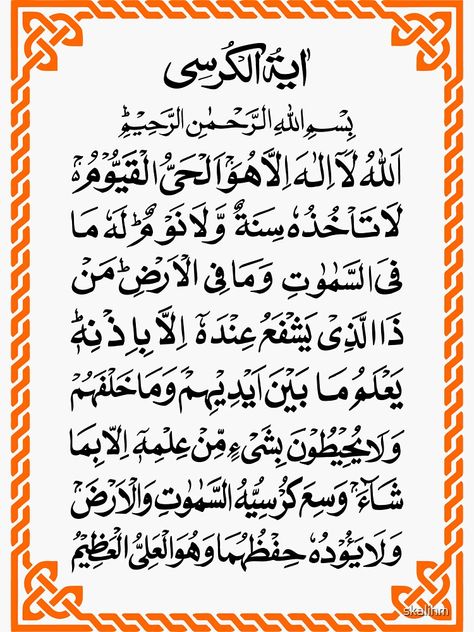 اٰیة الکرسی
بِسْمِ اللهِ الرَّحْمٰنِ الرَّحِيْمِ
اَللهُ لَآ اِلٰهَ اِلَّا هُوَۚ اَلْحَیُّ الْقَيُّوْمُ ۚ
لَا تَاْخُذُهٗ سِنَةٌ وَّلَا نَوْمٌ ؕ لَهٗ مَا
فِی السَّمٰوٰتِ وَمَا فِی الْاَرْضِ ؕ مَنْ
ذَا الَّذِیْ يَشْفَعُ عِنْدَهٗٓ اِلَّا بِاِذْنِهٖ ؕ
يَعْلَمُ مَا بَيْنَ اَيْدِيْهِمْ وَمَا خَلْفَهُمْ ۚ
وَلَا يُحِيْطُوْنَ بِشَیْءٍ مِّنْ عِلْمِهٖٓ اِلَّا بِمَا
شَآءَ ۚ وَسِعَ كُرْسِيُّهُ السَّمٰوٰتِ وَالْاَرْضَ ۚ
وَلَا يَـُٔوْدُهٗ حِفْظُهُمَا وَهُوَ الْعَلِیُّ الْعَظِيْمُ
skalihm